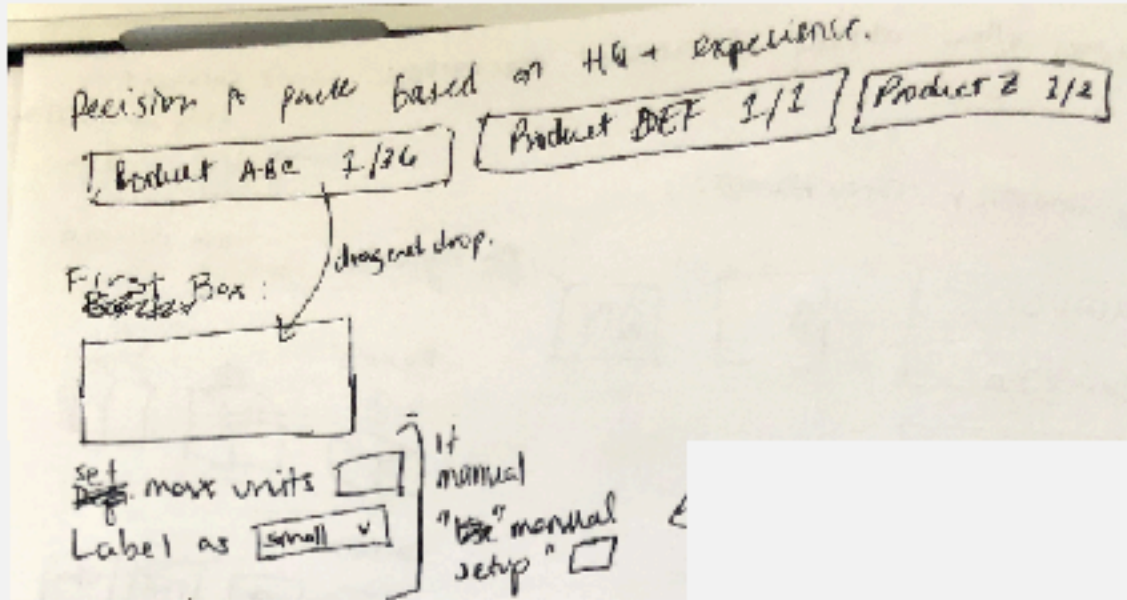 Decision to pack based on HQ + experience.
Product ABC 1/36
Product DEF 1/1
Product Z 1/2
drag and drop.
First Box:
set max units
Label as small v
If
manual
" manual
setup "